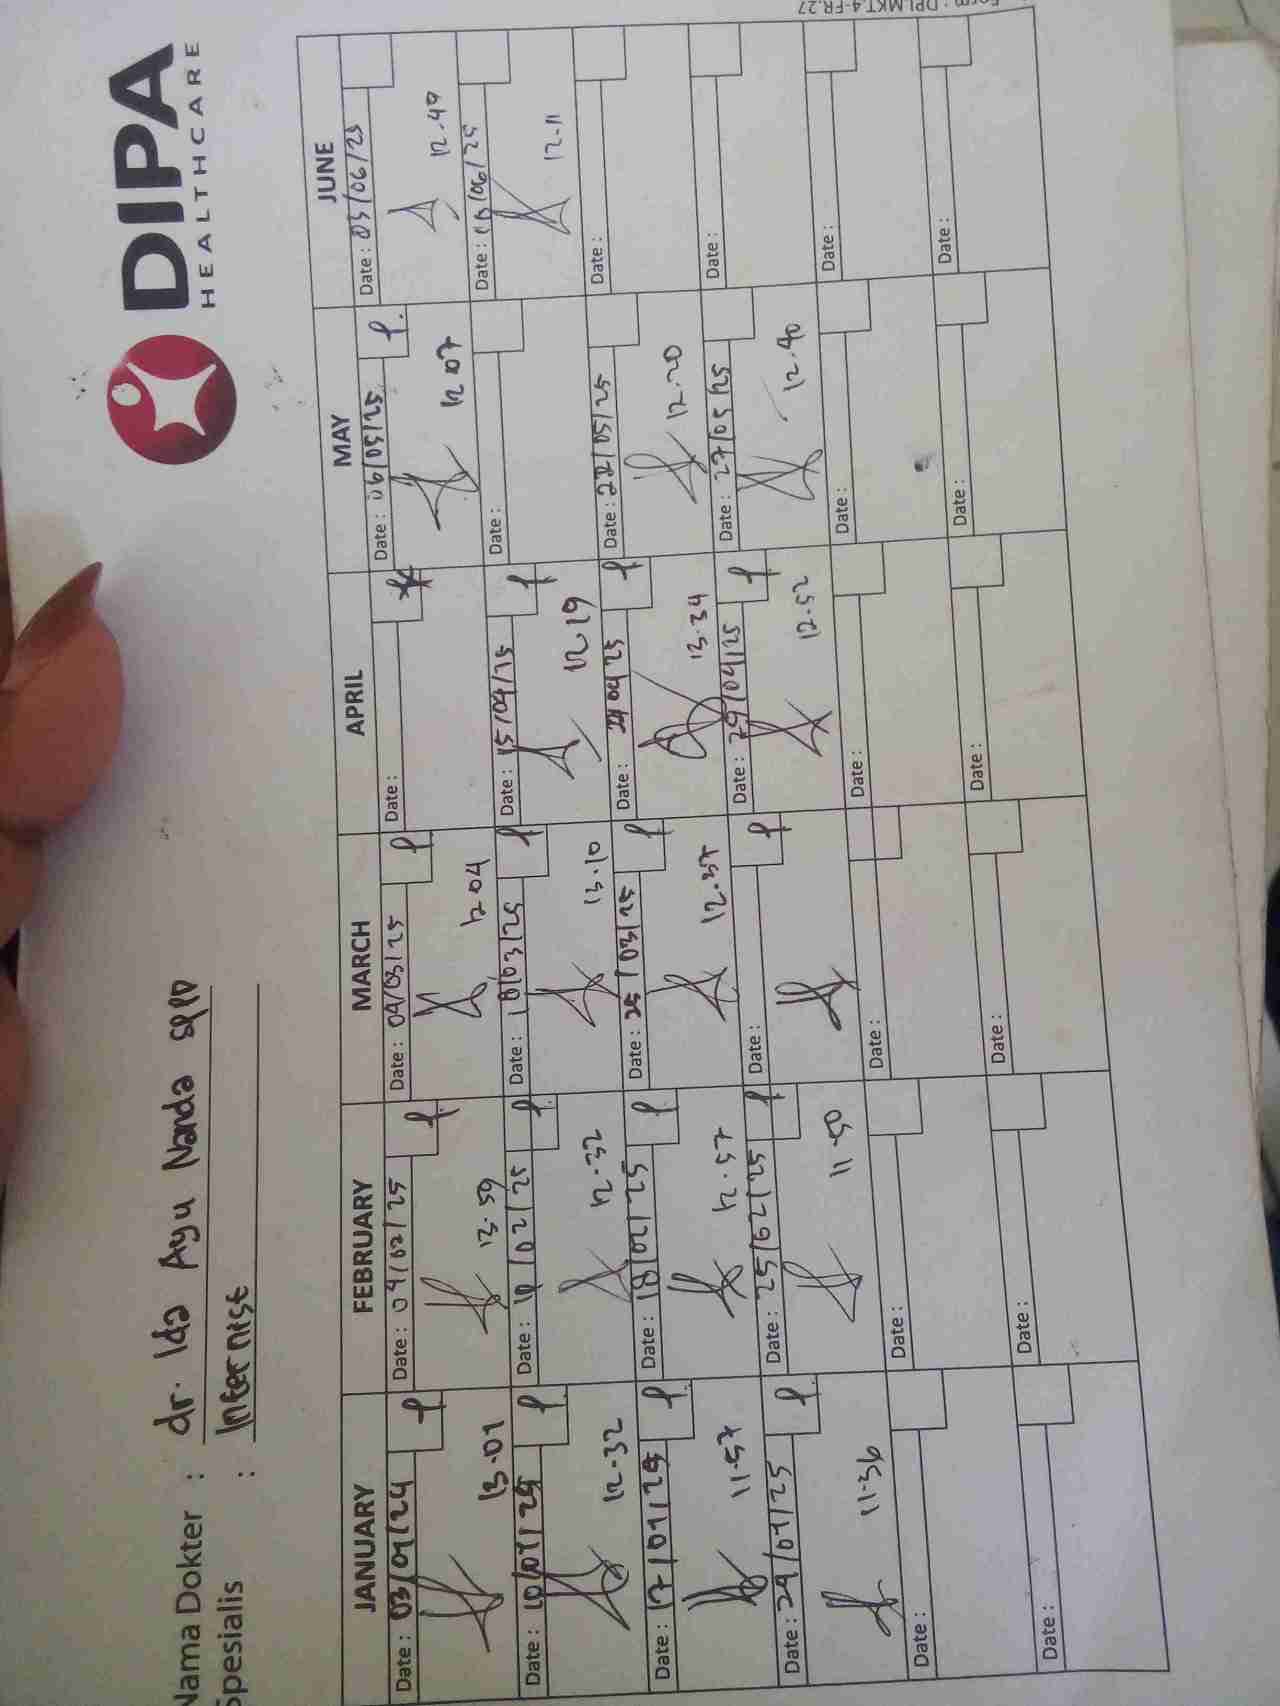 Form : DPI.MKT.4-FR.27
DIPA
HEALTHCARE
Nama Dokter : dr. Ida Ayu Nanda SpPD
Spesialis : Internist
JANUARY FEBRUARY MARCH APRIL MAY JUNE
Date : 03/01/24 Date : 04/02/25 Date : 04/03/25 Date : Date : 06/05/25 Date : 03/06/25
13.01 13.59 12.04 12.07 12.49
Date : 10/01/25 Date : 10/02/25 Date : 18/03/25 Date : 15/04/25 Date : Date : 10/06/25
12.32 12.32 13.10 12.19 12.11
Date : 17/01/25 Date : 18/02/25 Date : 25/03/25 Date : 04/25 Date : 22/05/25 Date :
11.57 12.57 12.37 13.34 12.20
Date : 29/01/25 Date : 25/02/25 Date : Date : 29/04/25 Date : 27/05/25 Date :
11.36 11.50 12.52 12.40
Date : Date : Date : Date : Date : Date :
Date : Date : Date : Date : Date : Date :